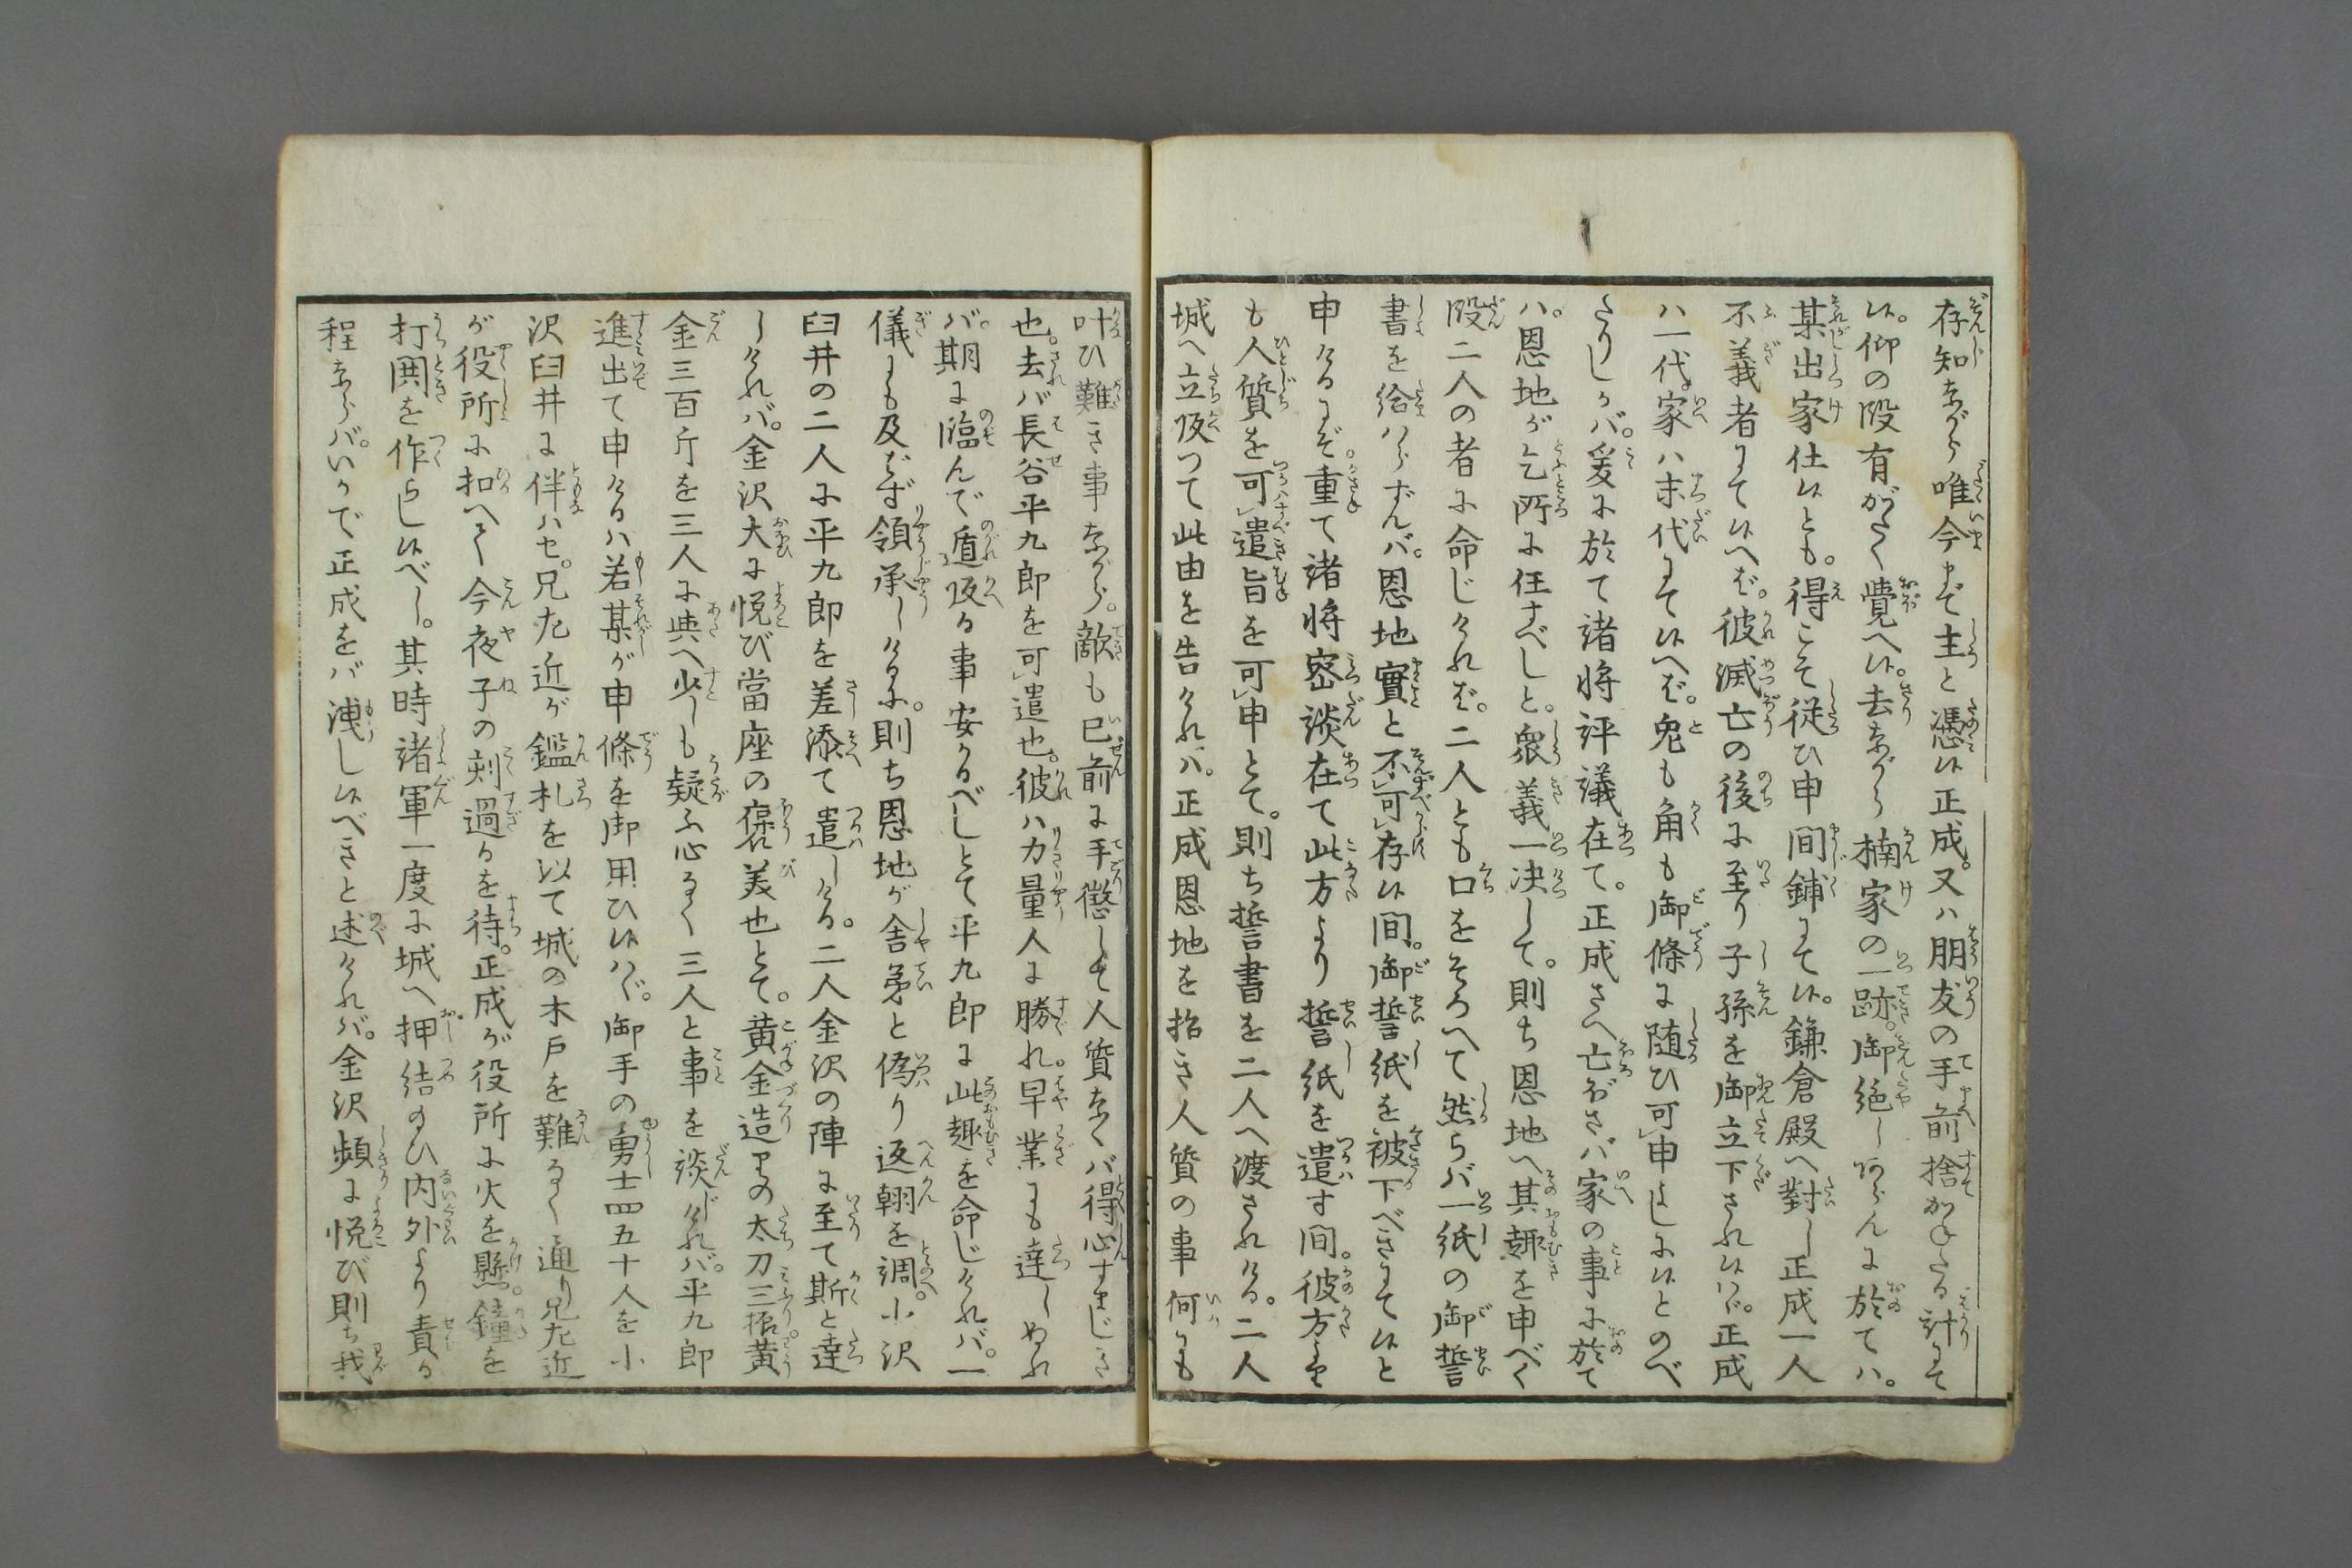 存知ながら唯今まで主と憑候正成。又ハ朋友の手前捨かねたる計にて
候。仰の段有がたく覺へ候。去ながら楠家の一跡。御絶しあらんに於てハ。
某出家仕候とも。得こそ従ひ申間鋪にて候。鎌倉殿へ對し正成一人
不義者にて候へば。彼滅亡の後に至り子孫を御立下され候ハヾ。正成
ハ一代。家ハ末代にて候へば。兎も角も御條に随ひ可申よしに候とのべ
たりしかバ。爰に於て諸将評議在て。正成さへ亡びさバ家の事に於て
ハ。恩地が乞所に任すべしと。衆義一决して。則ち恩地へ其趣を申べく
段二人の者に命じけれバ。二人とも口をそろへて然らバ一紙の御誓
書を給ハらずんバ。恩地實と不可存候間。御誓紙を被下べきにて候と
申けるにぞ。重て諸将密談在て此方より誓紙を遣す間。彼方
も人質を可遣旨を可申とて。則ち誓書を二人へ渡されける。二人
城へ立皈つて此由を告けれバ。正成恩地を招き人質の事何にも
叶ひ難き事ながら。敵も已前に手懲して人質なくバ得心すまじき
也。去バ長谷平九郎を可遣也。彼ハ力量人に勝れ早業にも達しぬれ
バ。期に臨んで遁皈る事安かるべしとて平九郎に此趣を命じけれバ。一
儀にも及ばず領承しけるに。則ち恩地が舎弟と偽り返翰を調。小沢
臼井の二人に平九郎を差添て遣しける。二人金沢の陣に至て斯と達
しけれバ。金沢大に悦び當座の褒美也とて。黄金造りの太刀三振黄
金三百斤を三人に與へ少しも疑ふ心なく三人と事を談じけれバ。平九郎
進出て申けるハ若某が申條を御用ひ候ハヾ。御手の勇士四五十人を小
沢臼井に伴ハセ。兄左近が鑑札を以て城の木戸を難なく通り兄左近
が役所に扣へて今夜子の刻過るを待。正成が役所に火を懸。鐘を
打鬨を作らし候べし。其時諸軍一度に城へ押結給ひ内外より責る
程ならバ。いかで正成をバ洩し候べきと述けれバ。金沢頻に悦び則ち我